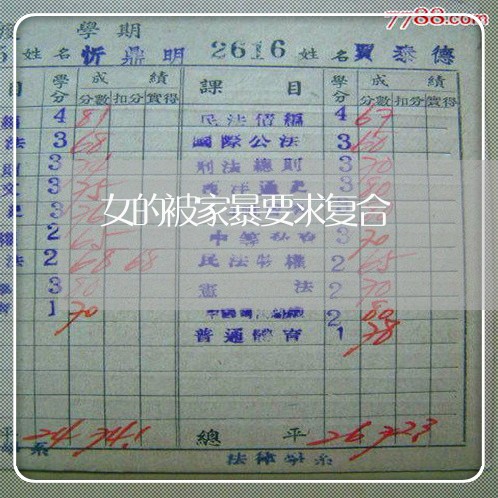 7788.com
學期
姓名 忻鼎明 2616 姓名 賈泰德
目 學分 成績 課目 學分 成績
分數 扣分 實得 分數 扣分 實得
4 81 民法債編 4 67
法 3 68 國際公法 3 60
3 刑法總則 3 70
文 3 75 西洋通史 3 80
3 76
女的被家暴要求复合
2 65 3 70
法 2 68 68 民法物權 2 65
3 80 憲法 2 70
育 1 70 2 80
普通體育 1 78
平 24 74.1 總平 26 72.3
系 法律學系